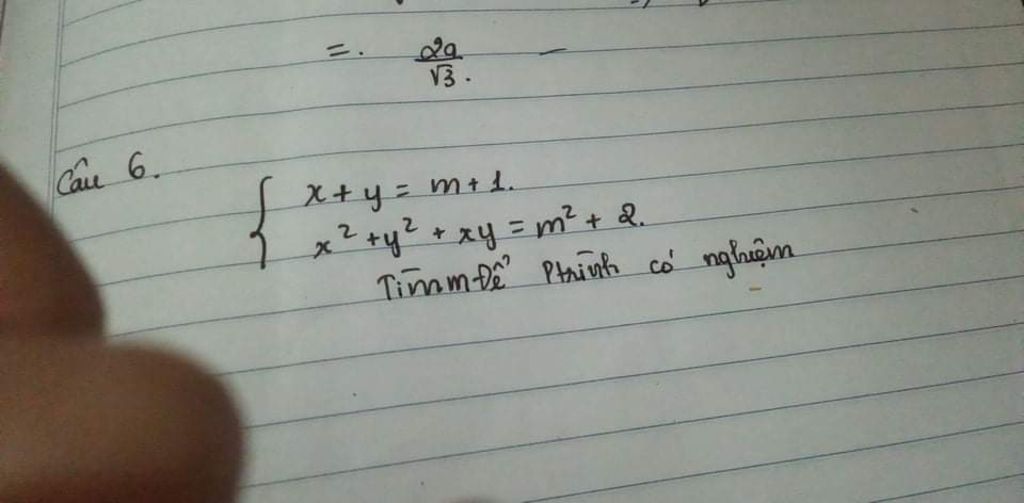 =. 2a/√3. —
Câu 6.
{ x + y = m + 1.
x² + y² + xy = m² + 2.
Tìm m Để Ptrình có nghiệm